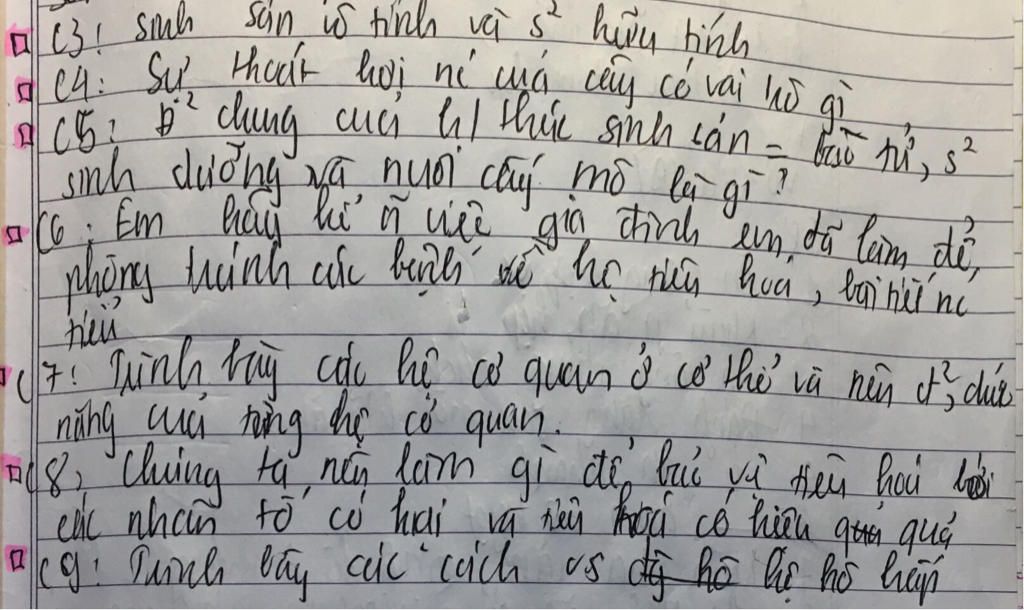 C3: sinh sản vô tính và s² hữu tính
C4: Sự thoát hơi nc của cây có vai trò gì
C5: Đ² chung của h/ thức sinh sản = bào tử, s²
sinh dưỡng và nuôi cấy mô là gì?
C6: Em hãy kể ~ việc gia đình em đã làm để
phòng tránh các bệnh về hệ tiêu hoá, bài tiết nc
tiểu
C7: Trình bày các hệ cơ quan ở cơ thể và nên c², chức
năng của từng hệ cơ quan.
C8: Chúng ta nên làm gì để bảo vệ tiêu hoá bởi
các nhân tố có hại và tiêu hoá có hiệu quả
C9: Trình bày các cách vs hệ hô hấp